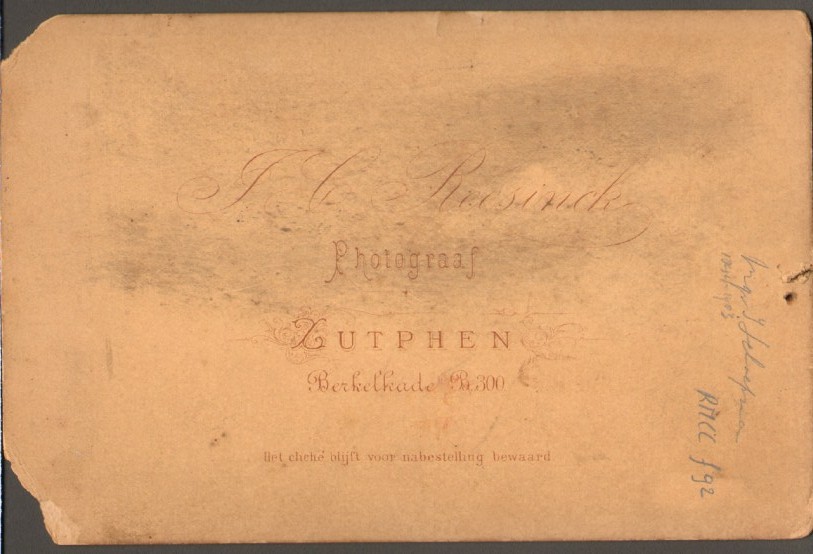 J C Reesinck
Photograaf
ZUTPHEN
Berkelkade Ba300
Het cliché blijft voor nabestelling bewaard
RMCC f 92